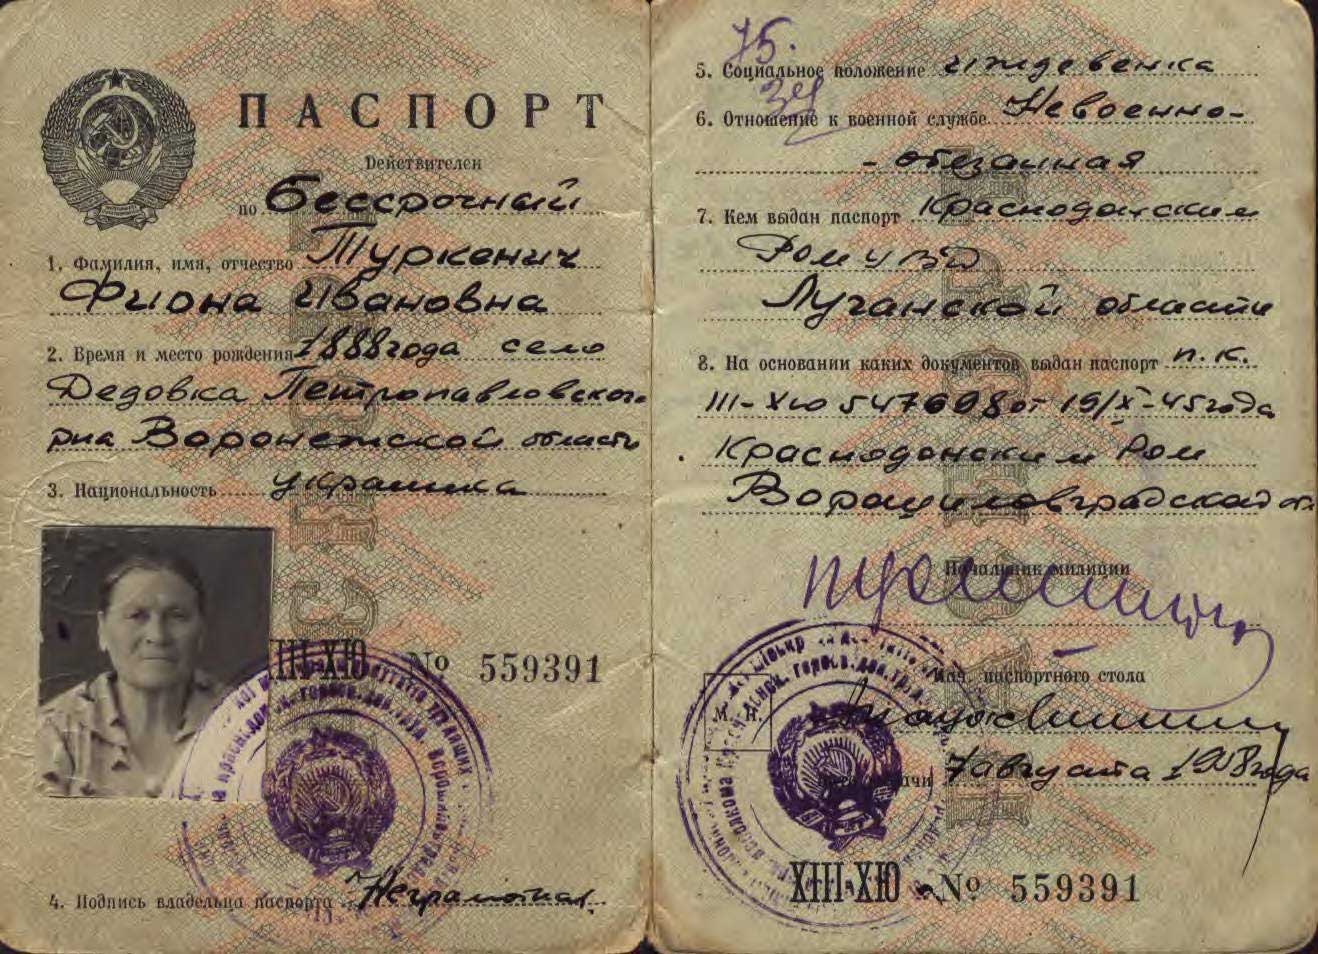 ПАСПОРТ
Действителен
по Бессрочный
1. Фамилия, имя, отчество Туркенич
Фиона Ивановна
2. Время и место рождения 1888 года село
Дедовка Петропавловского
р-на Воронежской области
3. Национальность украинка
XIII-ХЮ № 559391
4. Подпись владельца паспорта Неграмотная
75.
5. Социальное положение иждевенка
34
6. Отношение к военной службе Невоенно-
- обезанная
7. Кем выдан паспорт Краснодонским
Ром УВД
Луганской области
8. На основании каких документов выдан паспорт п. к.
III-ХЮ 547698 от 19/X-45 года
Краснодонским Ром
Ворошиловградской обл
Начальник милиции
Нач. паспортного стола
М. П.
7 августа 1958 года
XIII-ХЮ № 559391